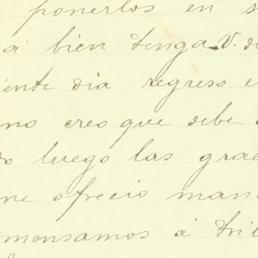 ponerlos en s
á bien tenga V. d
iente dia regreso e
no creo que debe
do luego las grac
me ofreció man
mensamos á tri